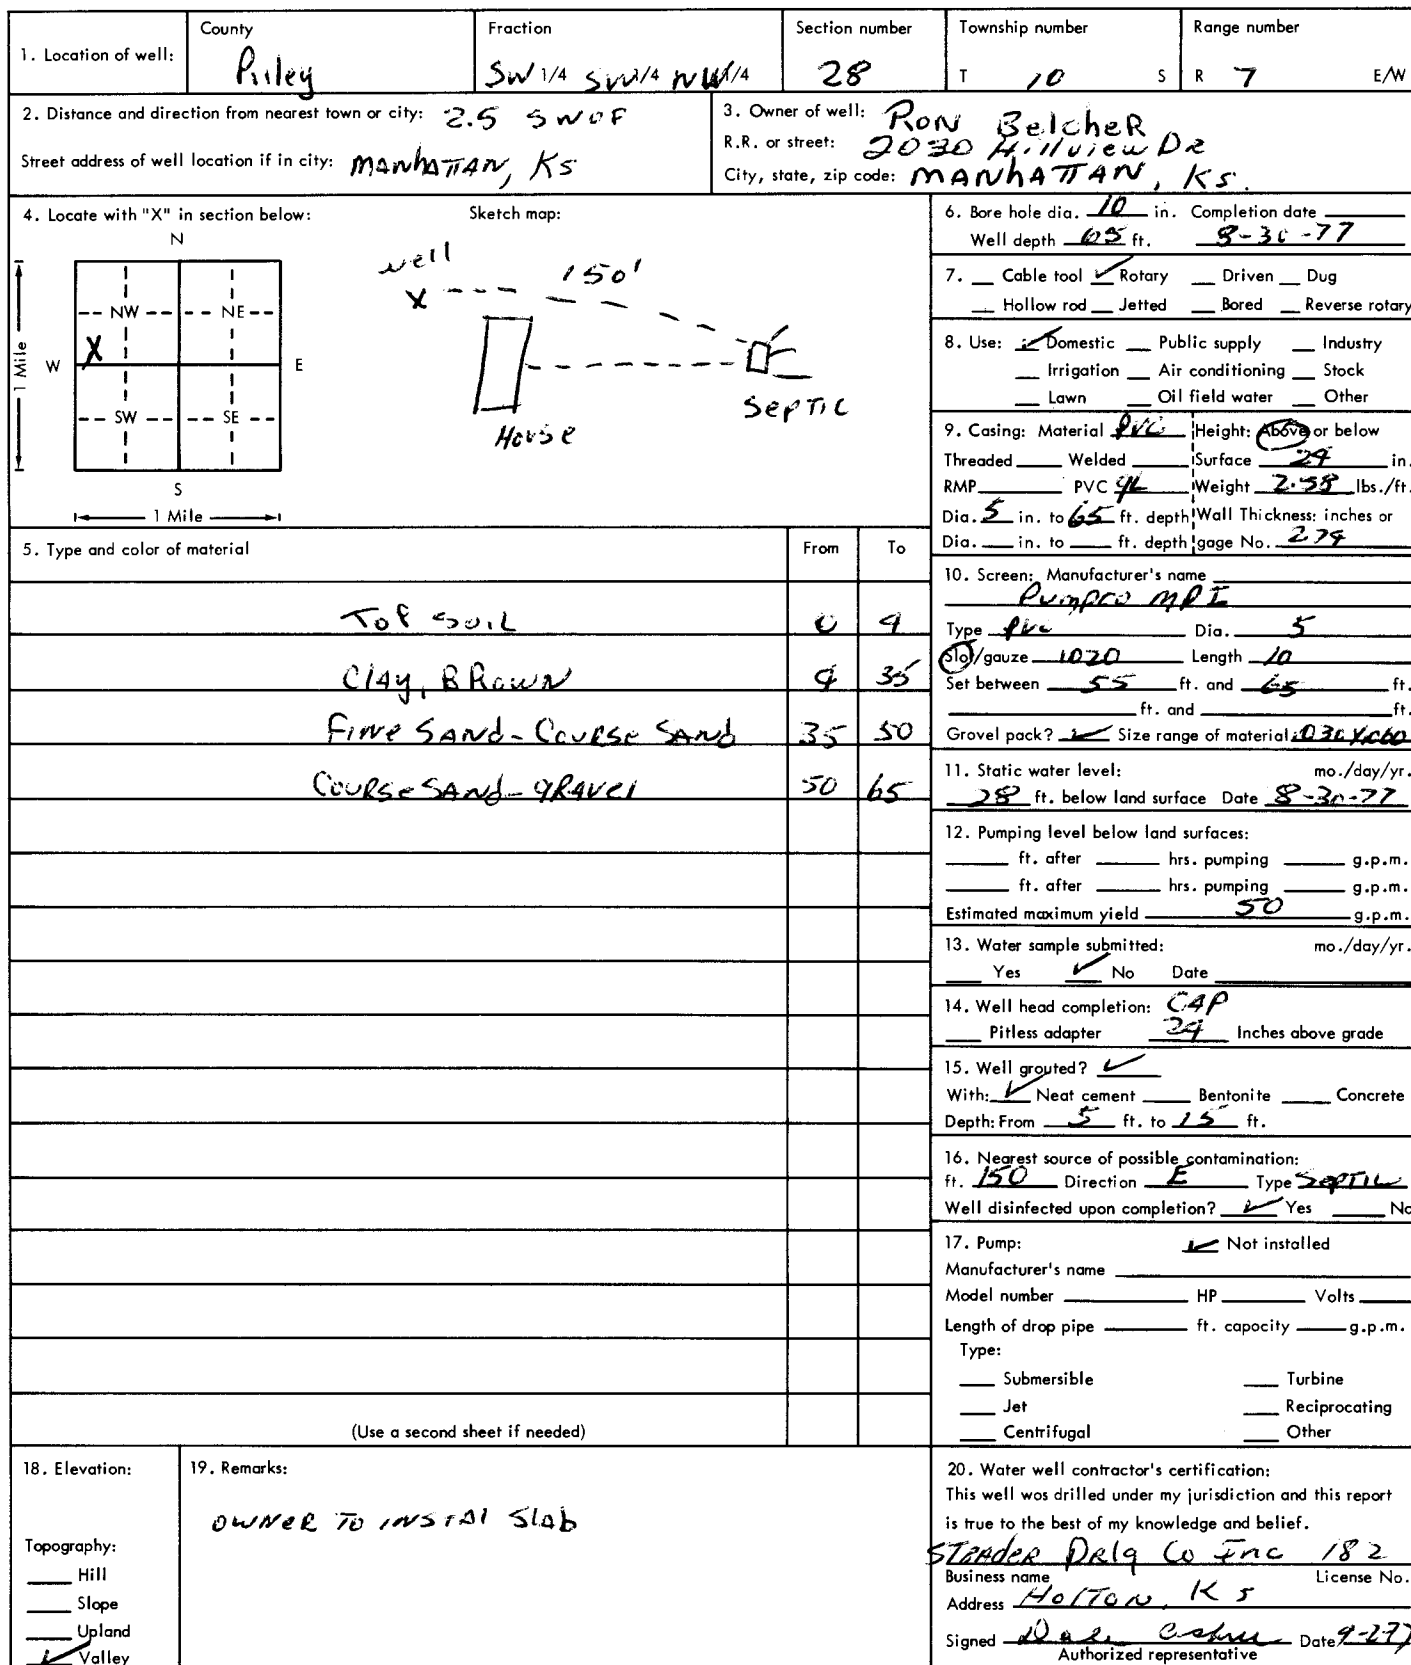 1. Location of well:
County
Riley
Fraction
SW 1/4 SW 1/4 NW 1/4
Section number
28
Township number
T 10 S
Range number
R 7 E/W
2. Distance and direction from nearest town or city: 2.5 SW OF
Street address of well location if in city: MANHATTAN, KS
3. Owner of well: RON BelcheR
R.R. or street: 2030 Hillview DR
City, state, zip code: MANHATTAN, KS.
4. Locate with "X" in section below:
N
NW NE
X
W E
SW SE
S
1 Mile
1 Mile
Sketch map:
well
X 150'
House
SepTIC
5. Type and color of material From To
Top SOIL 0 4
Clay, BRown 4 35
Fine SANd - Course SANd 35 50
Course SANd - gRAvel 50 65
(Use a second sheet if needed)
6. Bore hole dia. 10 in. Completion date
Well depth 65 ft. 8-30-77
7. Cable tool ✓ Rotary Driven Dug
Hollow rod Jetted Bored Reverse rotary
8. Use: ✓ Domestic Public supply Industry
Irrigation Air conditioning Stock
Lawn Oil field water Other
9. Casing: Material PVC Height: Above or below
Threaded Welded Surface 24 in.
RMP PVC GL Weight 2.58 lbs./ft.
Dia. 5 in. to 65 ft. depth Wall Thickness: inches or
Dia. in. to ft. depth gage No. 274
10. Screen: Manufacturer's name
Pumpco MPI
Type PVC Dia. 5
Slot/gauze .020 Length 10
Set between 55 ft. and 65 ft.
ft. and ft.
Grovel pack? ✓ Size range of material .030 X .060
11. Static water level: mo./day/yr.
28 ft. below land surface Date 8-30-77
12. Pumping level below land surfaces:
ft. after hrs. pumping g.p.m.
ft. after hrs. pumping g.p.m.
Estimated maximum yield 50 g.p.m.
13. Water sample submitted: mo./day/yr.
Yes ✓ No Date
14. Well head completion: CAP
Pitless adapter 24 Inches above grade
15. Well grouted? ✓
With: ✓ Neat cement Bentonite Concrete
Depth: From 5 ft. to 15 ft.
16. Nearest source of possible contamination:
ft. 150 Direction E Type SepTIC
Well disinfected upon completion? ✓ Yes No
17. Pump: ✓ Not installed
Manufacturer's name
Model number HP Volts
Length of drop pipe ft. capacity g.p.m.
Type:
Submersible Turbine
Jet Reciprocating
Centrifugal Other
18. Elevation:
Topography:
Hill
Slope
Upland
✓ Valley
19. Remarks:
OWNER TO INSTAl Slab
20. Water well contractor's certification:
This well was drilled under my jurisdiction and this report
is true to the best of my knowledge and belief.
STRADER DRlg Co Inc 182
Business name License No.
Address HolTON, KS
Signed Date 9-2-77
Authorized representative